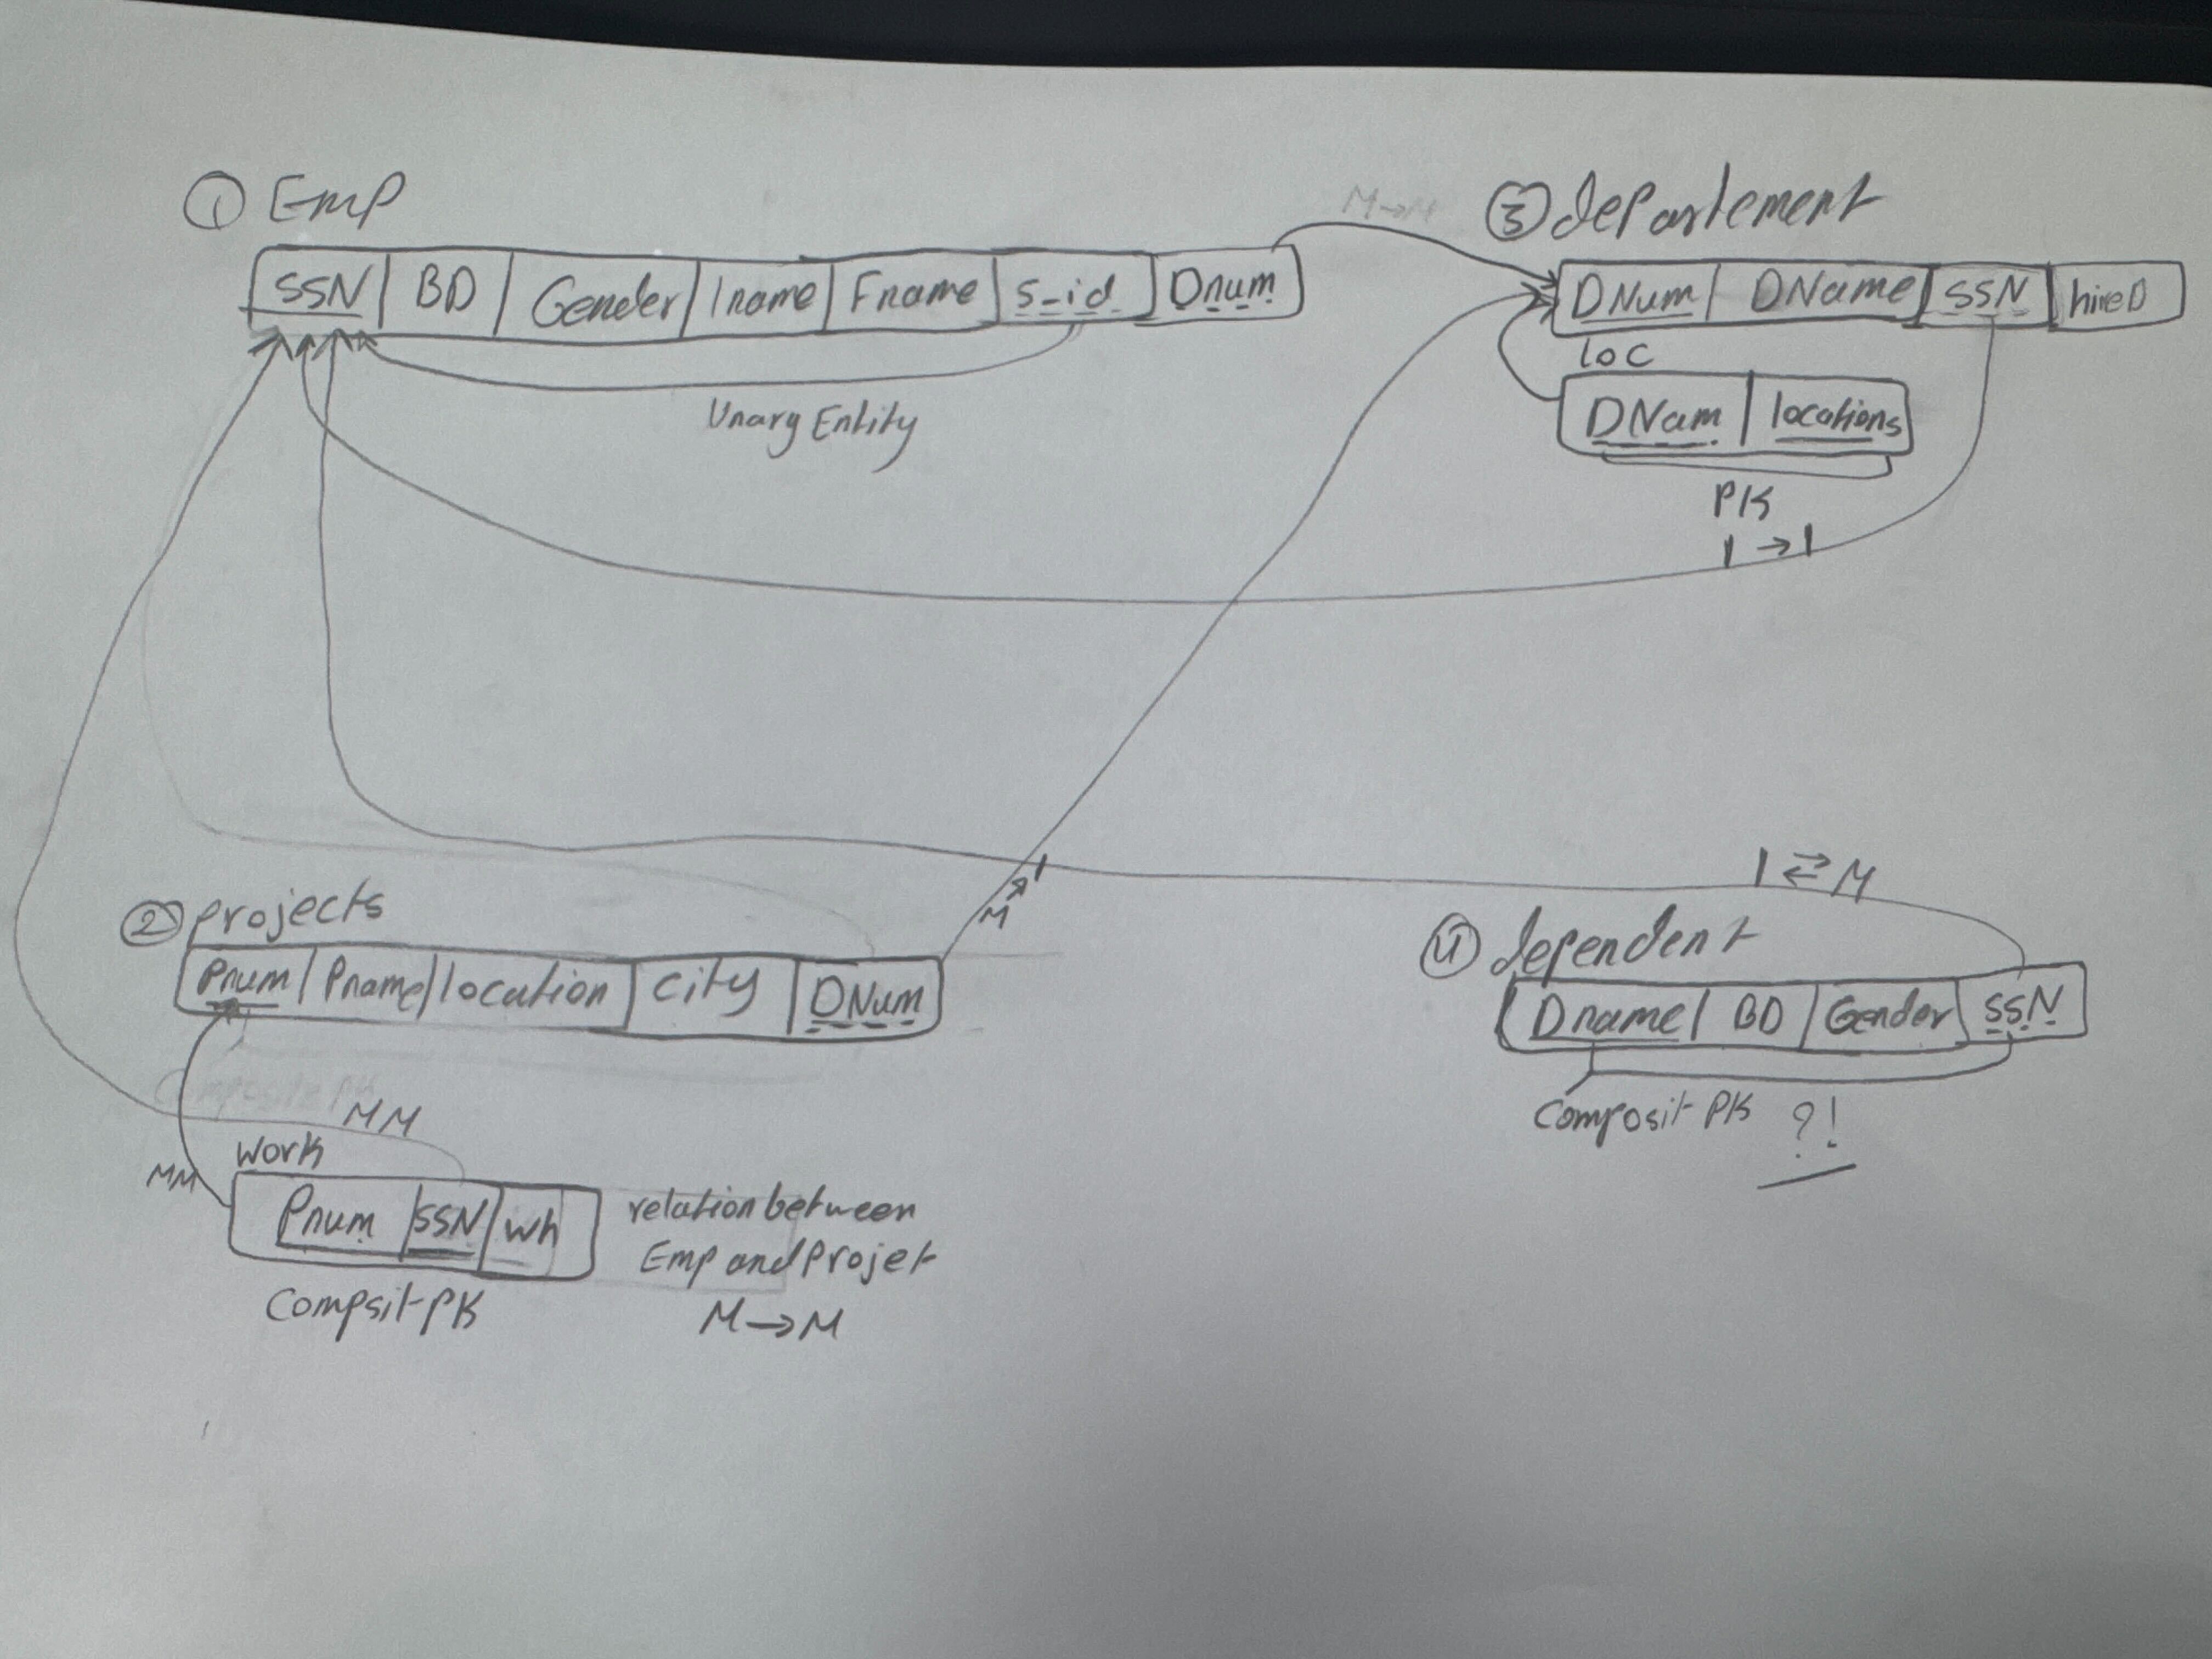 ① Emp
SSN BD Gender lname Fname S_id Dnum
Unary Entity
M→M
③ departement
DNum DName SSN hireD
loc
DNam locations
PK
1 → 1
② projects
Pnum Pname location city DNum
M → 1
Composite PK
MM
MM
work
Pnum SSN wh
Compsit PK
relation between
Emp and Projet
M → M
1 ⇄ M
④ dependent
Dname BD Gender SSN
Composit PK ?!